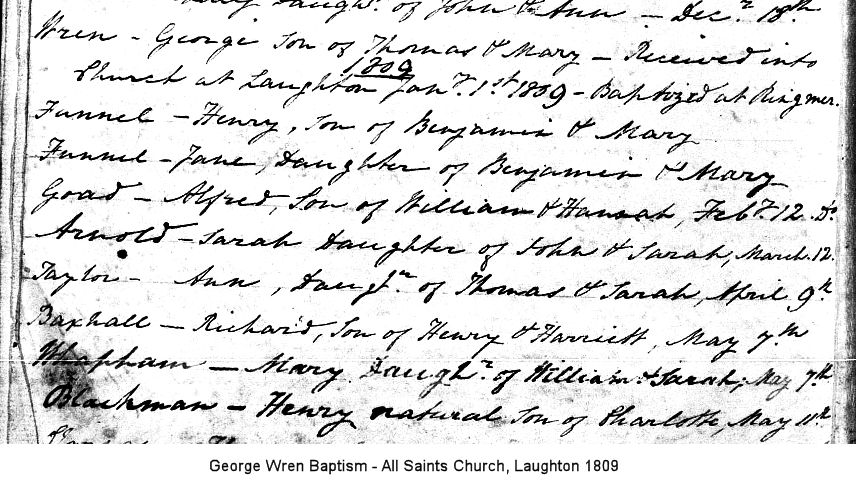 Daugh.r of John & Ann — Dec.r 18th
Wren - George Son of Thomas & Mary — Received into
1809
Church at Laughton Jan.y 1st 1809 - Baptized at Ringmer.
Funnel - Henry, Son of Benjamin & Mary
Funnel - Jane, Daughter of Benjamin & Mary
Goad - Alfred, Son of William & Hannah, Feb.y 12. Do.
Arnold - Sarah Daughter of John & Sarah, March. 12.
Taylor - Ann, Daugr. of Thomas & Sarah, April 9th
Baxhall — Richard, Son of Henry & Harriett, May 7th
Whapham — Mary Daugh.r of William & Sarah, May 7th
Blackman - Henry natural Son of Charlotte, May 11th
George Wren Baptism - All Saints Church, Laughton 1809